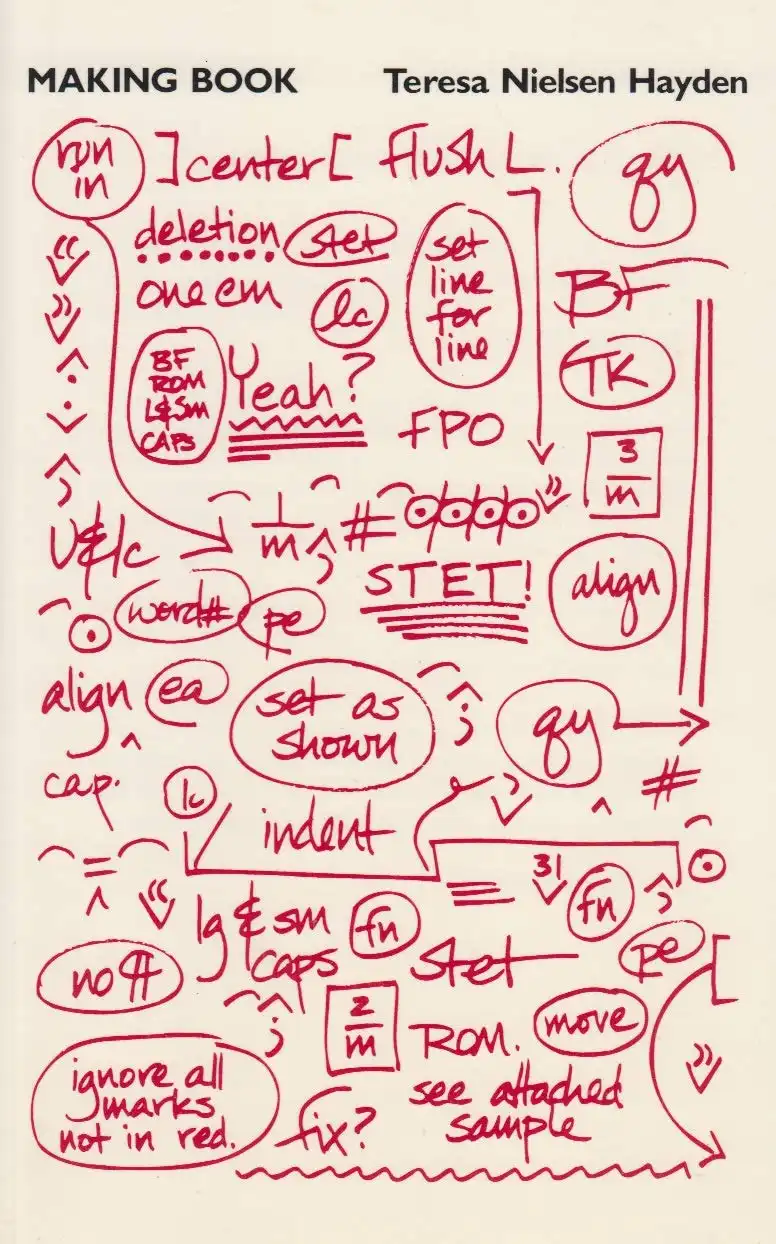 MAKING BOOK Teresa Nielsen Hayden
run in
]center[
flush L.
qy
deletion
stet
set
line
for
line
one em
lc
BF
BF
ROM
L&Sm
CAPS
Yeah?
TK
FPO
3/m
U&lc
1/m
#
STET!
align
word#
pe
align
ea
set as
shown
qy
cap.
lc
indent
#
31
lg & sm
caps
fn
fn
no ¶
stet
pe
2/m
ROM.
move
ignore all
marks
not in red.
fix?
see attached
sample